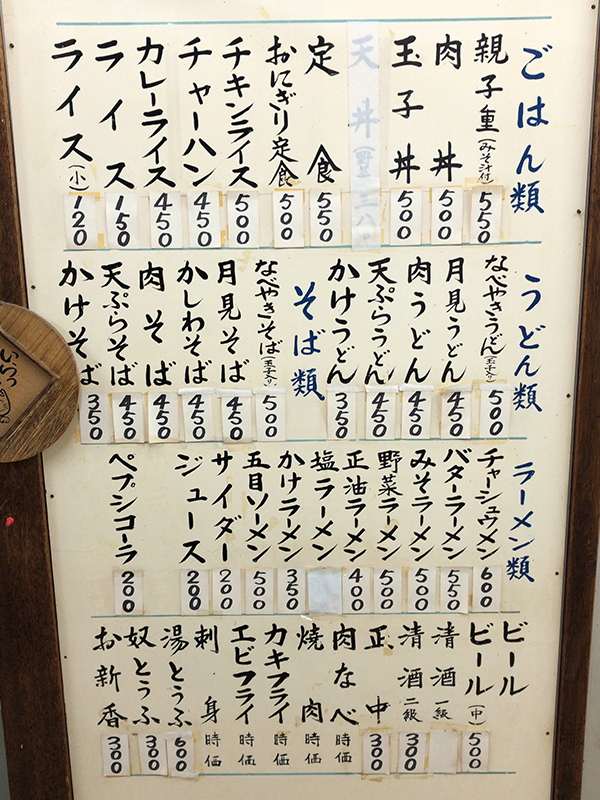 ごはん類
親子重(みそ汁付) 550
肉丼 500
玉子丼 500
天丼
定食 550
おにぎり定食 500
チキンライス 500
チャーハン 450
カレーライス 450
ライス 150
ライス(小) 120
うどん類
なべやきうどん(玉子入) 500
月見うどん 450
肉うどん 450
天ぷらうどん 450
かけうどん 350
そば類
なべやきそば(玉子入り) 500
月見そば 450
かしわそば 450
肉そば 450
天ぷらそば 450
かけそば 350
ラーメン類
チャーシュウメン 600
バターラーメン 550
みそラーメン 500
野菜ラーメン 500
正油ラーメン 400
塩ラーメン
かけラーメン 350
五目ソーメン 500
サイダー 200
ジュース 200
ペプシコーラ 200
ビール
ビール(中) 500
清酒一級
清酒二級 300
正中 300
肉なべ 時価
焼肉 時価
カキフライ 時価
エビフライ 時価
刺身 時価
湯とうふ 600
奴とうふ 300
お新香 300
いらっ